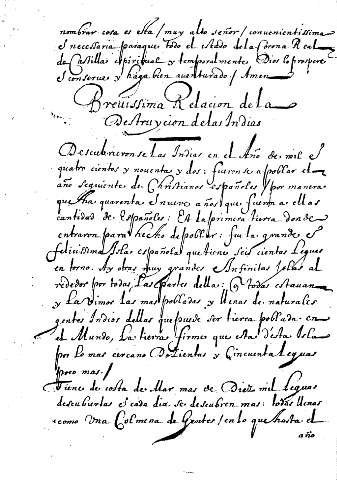 nombrar cosa es esta / muy alto señor / convenientissima
I necessaria paraque todo el estado de la Corona Real
de Castilla espiritual y temporalmente Dios lo prospere
I conserve y haga bien aventurado / Amen
Brevissima Relacion de la
Destruycion de las Indias
Descubrieronse las Indias en el Año de mil I
quatro cientos y noventa y dos: fueronse a poblar el
año siguiente de Christianos españoles por manera
que ha quarenta I nueve años que fueron a ellas
cantidad de Españoles: I la primera tierra donde
entraron para hecho de poblar: fue la grande I
felicissima Isla española que tiene seis cientas leguas
en torno. Ay otras muy grandes I infinitas Islas al
rededor por todas las partes della: que todas estavan
y las vimos las mas pobladas y llenas de naturales
gentes Indios dellas que puede ser tierra poblada en
el Mundo. La tierra firme que esta desta Isla
por lo mas cercano Dozientas y Cinquenta leguas
poco mas /
tiene de costa de Mar mas de Diez mil leguas
descubiertas I cada dia se descubren mas: todas llenas
como una Colmena de Gentes / en lo que hasta el
año